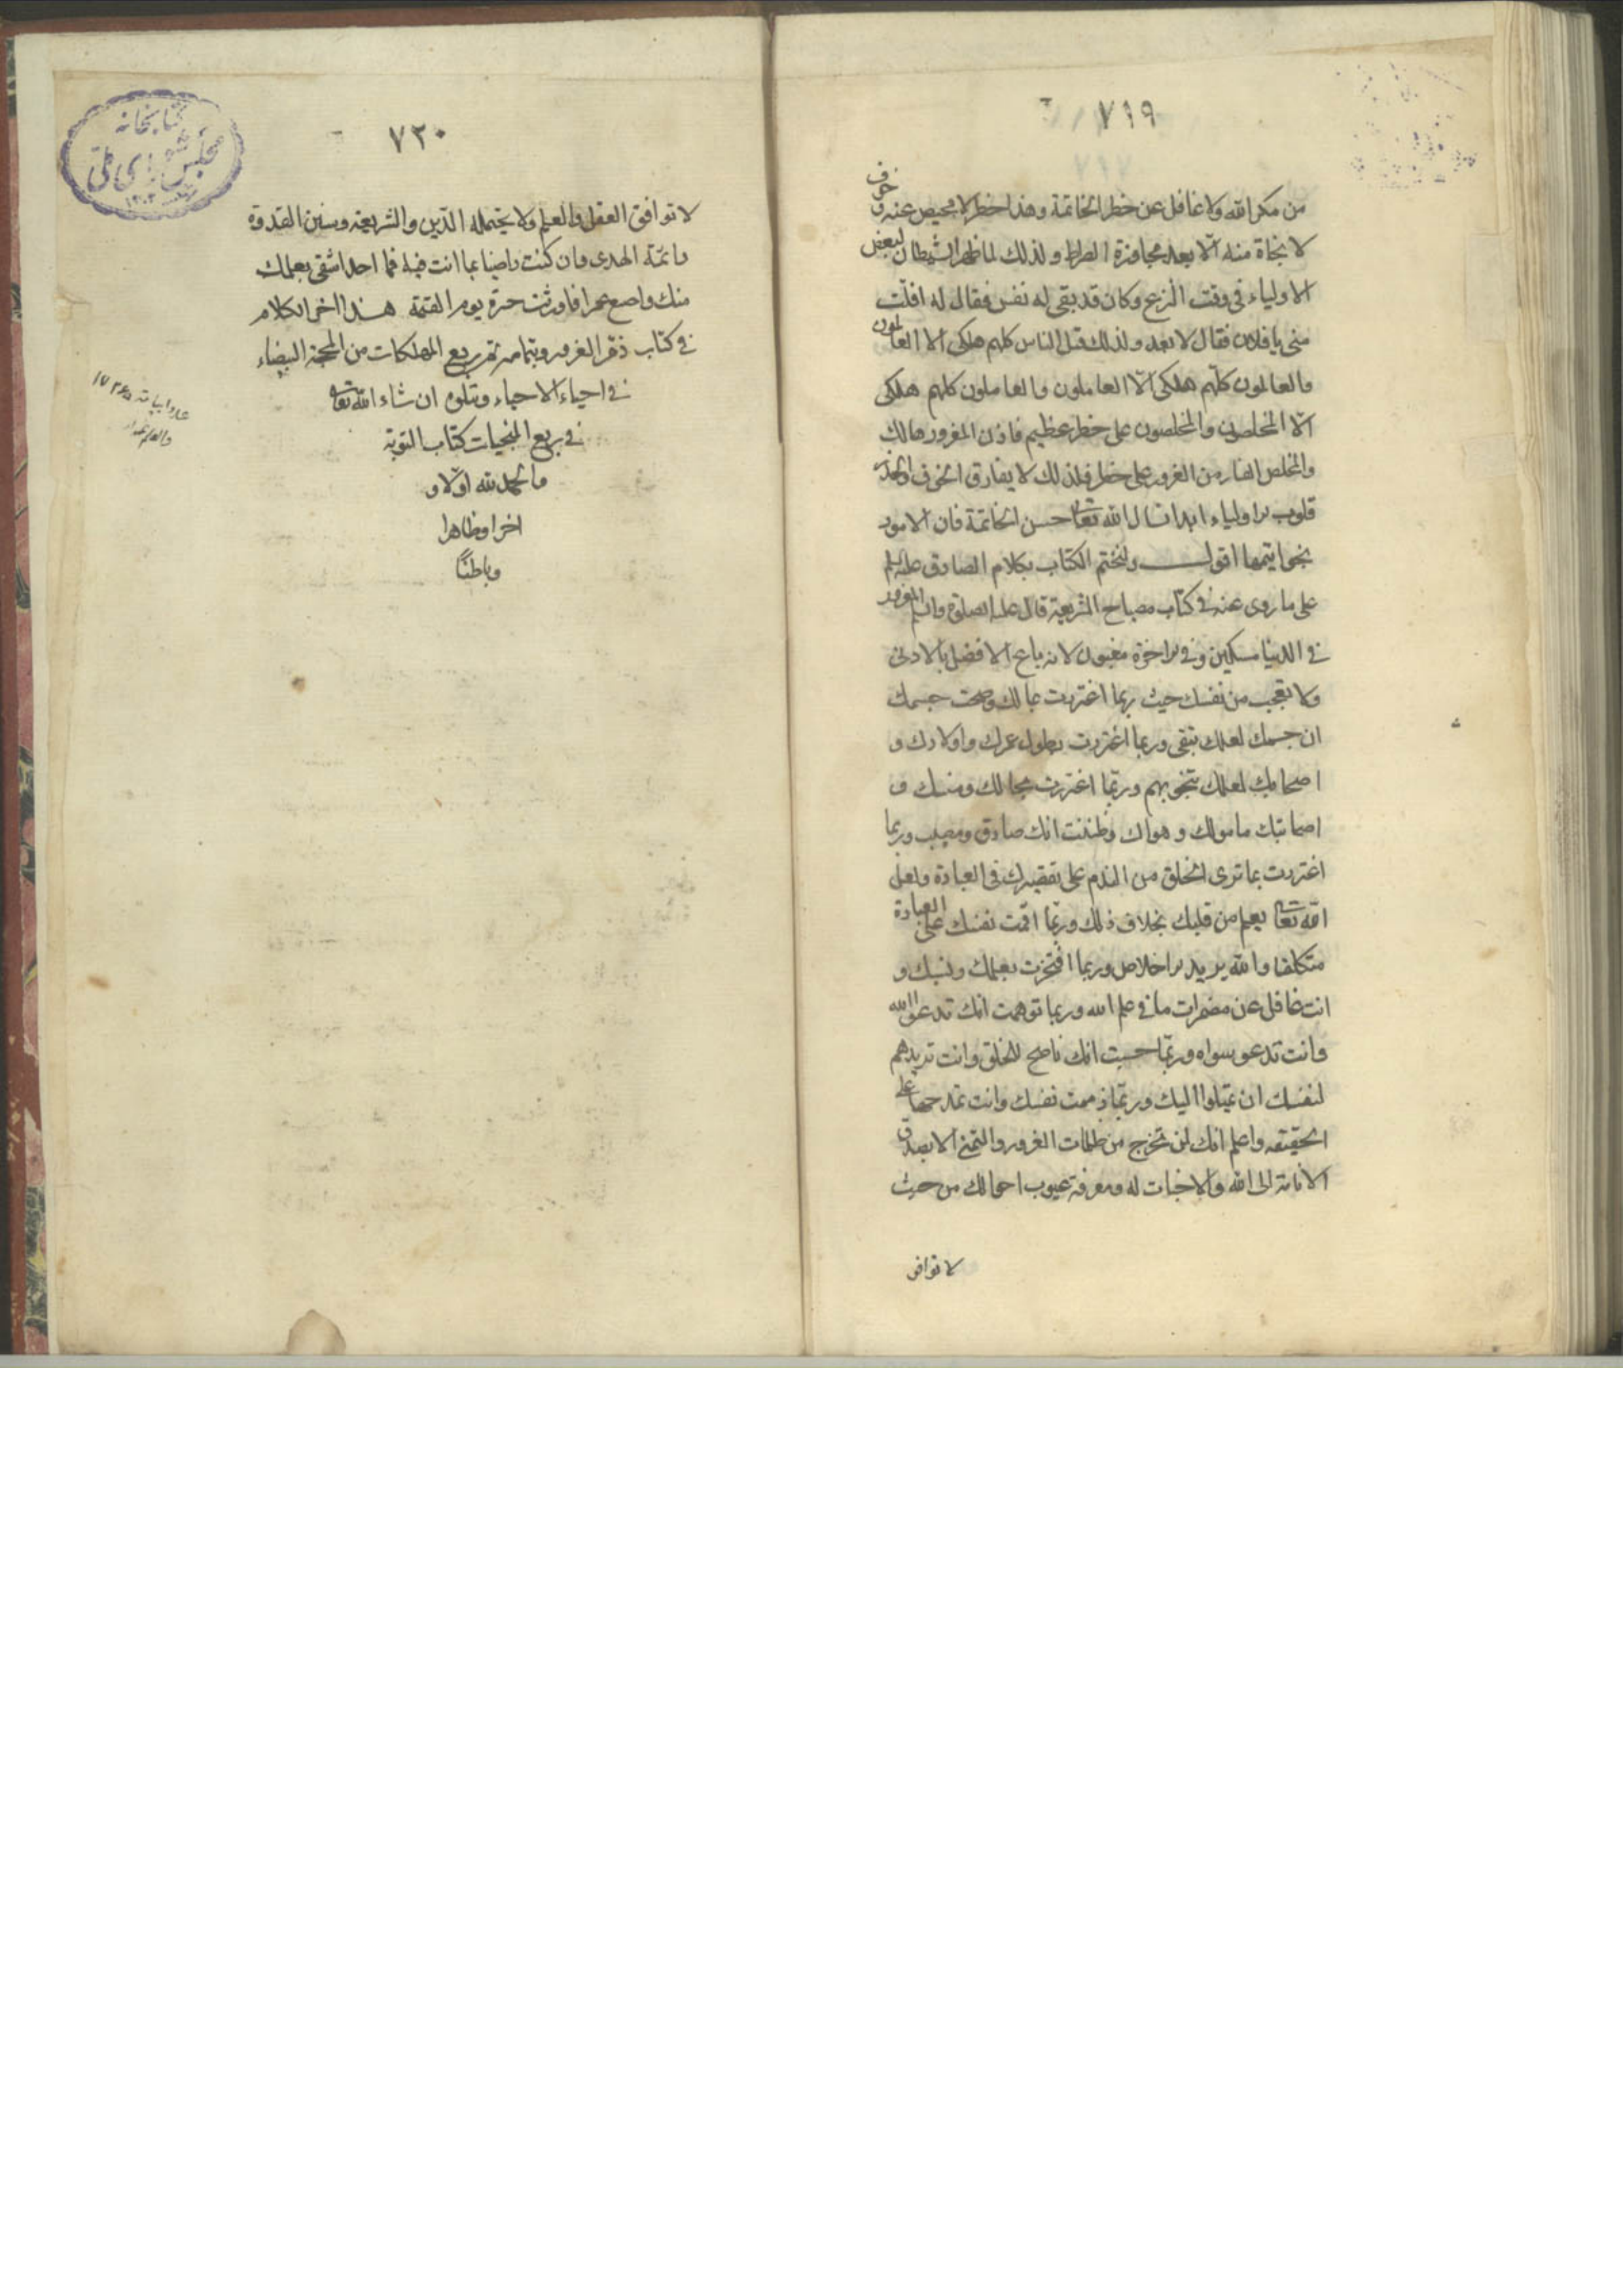 ٧١٩
من مكر الله ولا غافل عن خطر الخاتمة وهذا خطر لا محيص عنه وخوف
لا نجاة منه الا بعد مجاوزة الصراط ولذلك لما ظهر الشيطان لبعض
الاولياء فى وقت النزع وكان قد بقى له نفس فقال له افلتّ
منى يا فلان فقال لا بعد ولذلك قيل الناس كلهم هلكى الا العالمون
والعالمون كلهم هلكى الّا العاملون والعاملون كلهم هلكى
الّا المخلصون والمخلصون على خطر عظيم فاذن المغرور هالك
والمخلص الفار من الغرور على خطر فلذلك لا يفارق الخوف والحذر
قلوب اولياء ابدا نسال الله تعالى حسن الخاتمة فان الامور
بخواتيمها اقول ولنختم الكتاب بكلام الصادق عليه السلم
على ما روى عنه فى كتاب مصباح الشريعة قال عليه الصلوة والسلم المغرور
فى الدنيا مسكين وفى الاخرة مغبون لانه باع الافضل بالادنى
ولا تعجب من نفسك حيث ربما اغتررت بمالك وصحت جسمك
ان جسمك لعلك تبقى وربما اغتررت بطول عمرك واولادك و
اصحابك لعلك تنجو بهم وربّما اغتررت بجمالك ومنيتك و
اصابتك مامولك وهواك وظننت انك صادق ومصيب وربما
اغتررت بما ترى الخلق من الندم على تقصيرك فى العبادة ولعل
الله تعالى يعلم من قلبك بخلاف ذلك وربّما اقمت نفسك على العبادة
متكلفا والله يريد الاخلاص وربما افتخرت بعلمك ونسبك و
انت غافل عن مضمرات ما فى علم الله وربما توهمت انك تدعو الله
وانت تدعو سواه وربّما حسبت انك ناصح للخلق وانت تريدهم
لنفسك ان يميلوا اليك وربّما ذممت نفسك وانت تمدحها على
الحقيقه واعلم انك لن تخرج من ظلمات الغرور والتمنى الا بصدق
الانابة الى الله والاخبات له ومعرفة عيوب احوالك من حيث
لا توافق
٧٢٠
لا توافق العقل والعلم ولا يحتمله الدّين والشريعة وسنن القدوة
وائمّة الهدى وان كنت راضيا بما انت فيه فما احد اشقى بعملك
منك واضيع عمرا فاورثت حسرة يوم القيمة هذا اخر الكلام
فى كتاب ذمّ الغرور وبتمامه تم ربع المهلكات من المحجة البيضاء
فى احياء الاحياء ويتلوه ان شاء الله تعالى
فى ربع المنجيات كتاب التوبة
والحمد لله اوّلا و
اخرا وظاهرا
وباطنًا
كتابخانه
مجلس شوراى ملّى